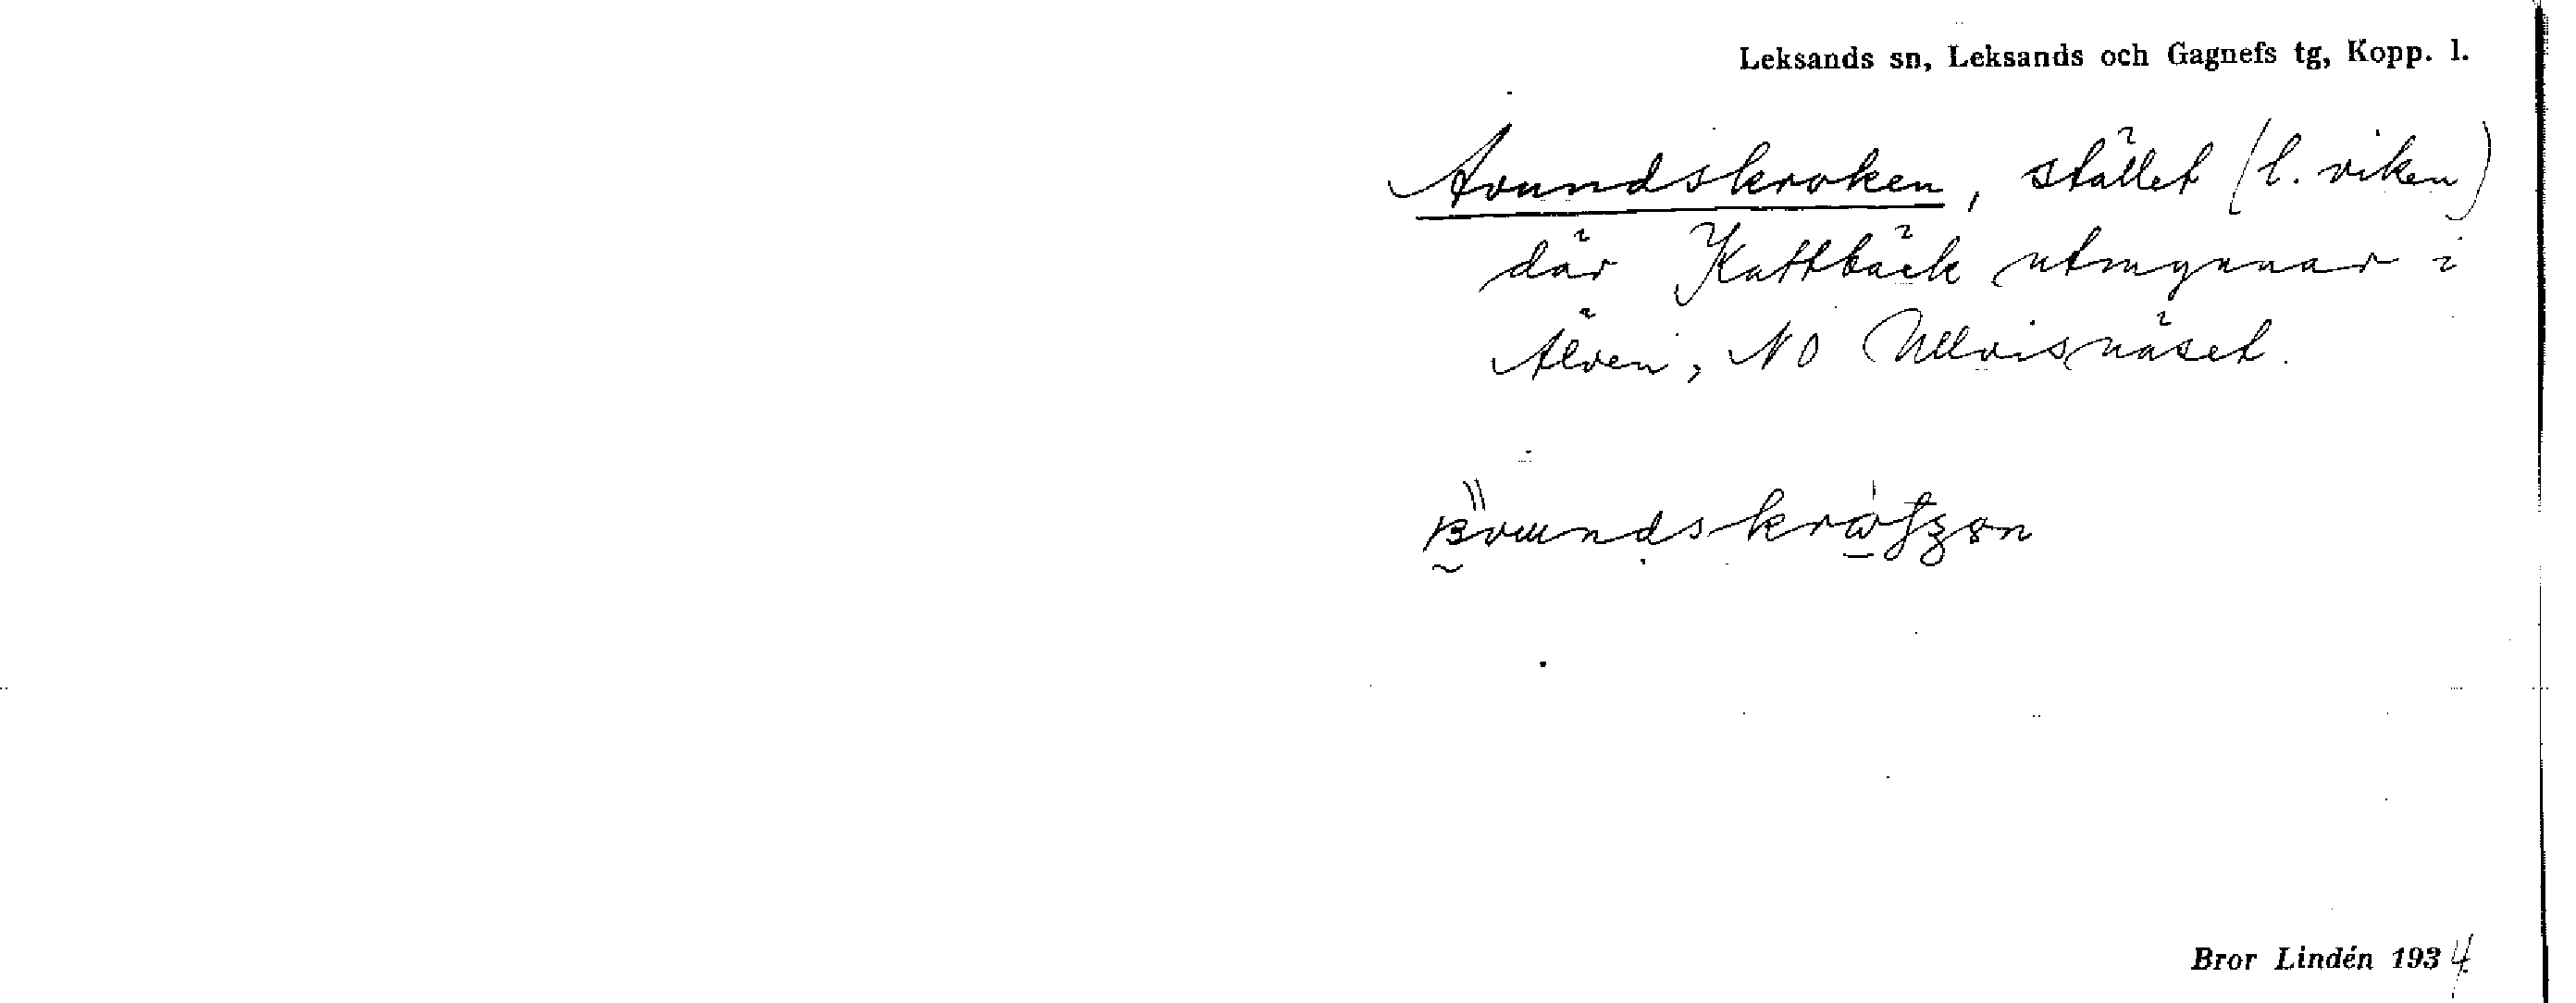 Leksands sn, Leksands och Gagnefs tg, Kopp. l.
Avundskroken, stället (l. viken)
där Kattbäck utmynnar i
Älven, NO Ullvisnäset.
Bror Lindén 1934